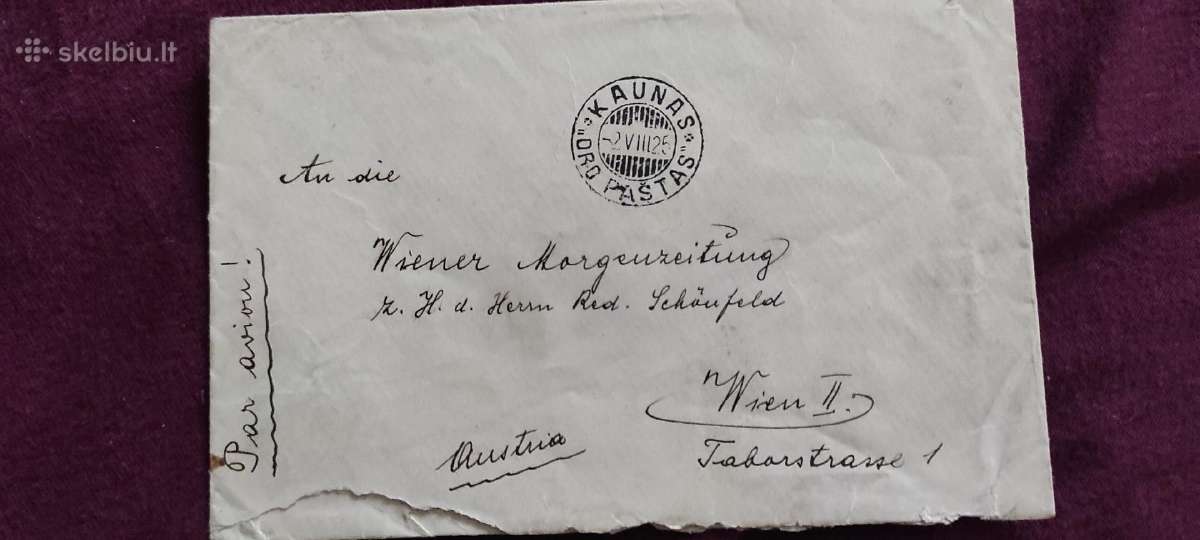 skelbiu.lt
KAUNAS
-2 VIII 25
"ORO PAŠTAS"
An die
Wiener Morgenzeitung
z. H. d. Herrn Red. Schönfeld
Wien II.
Taborstrasse 1
Austria
Par avion!